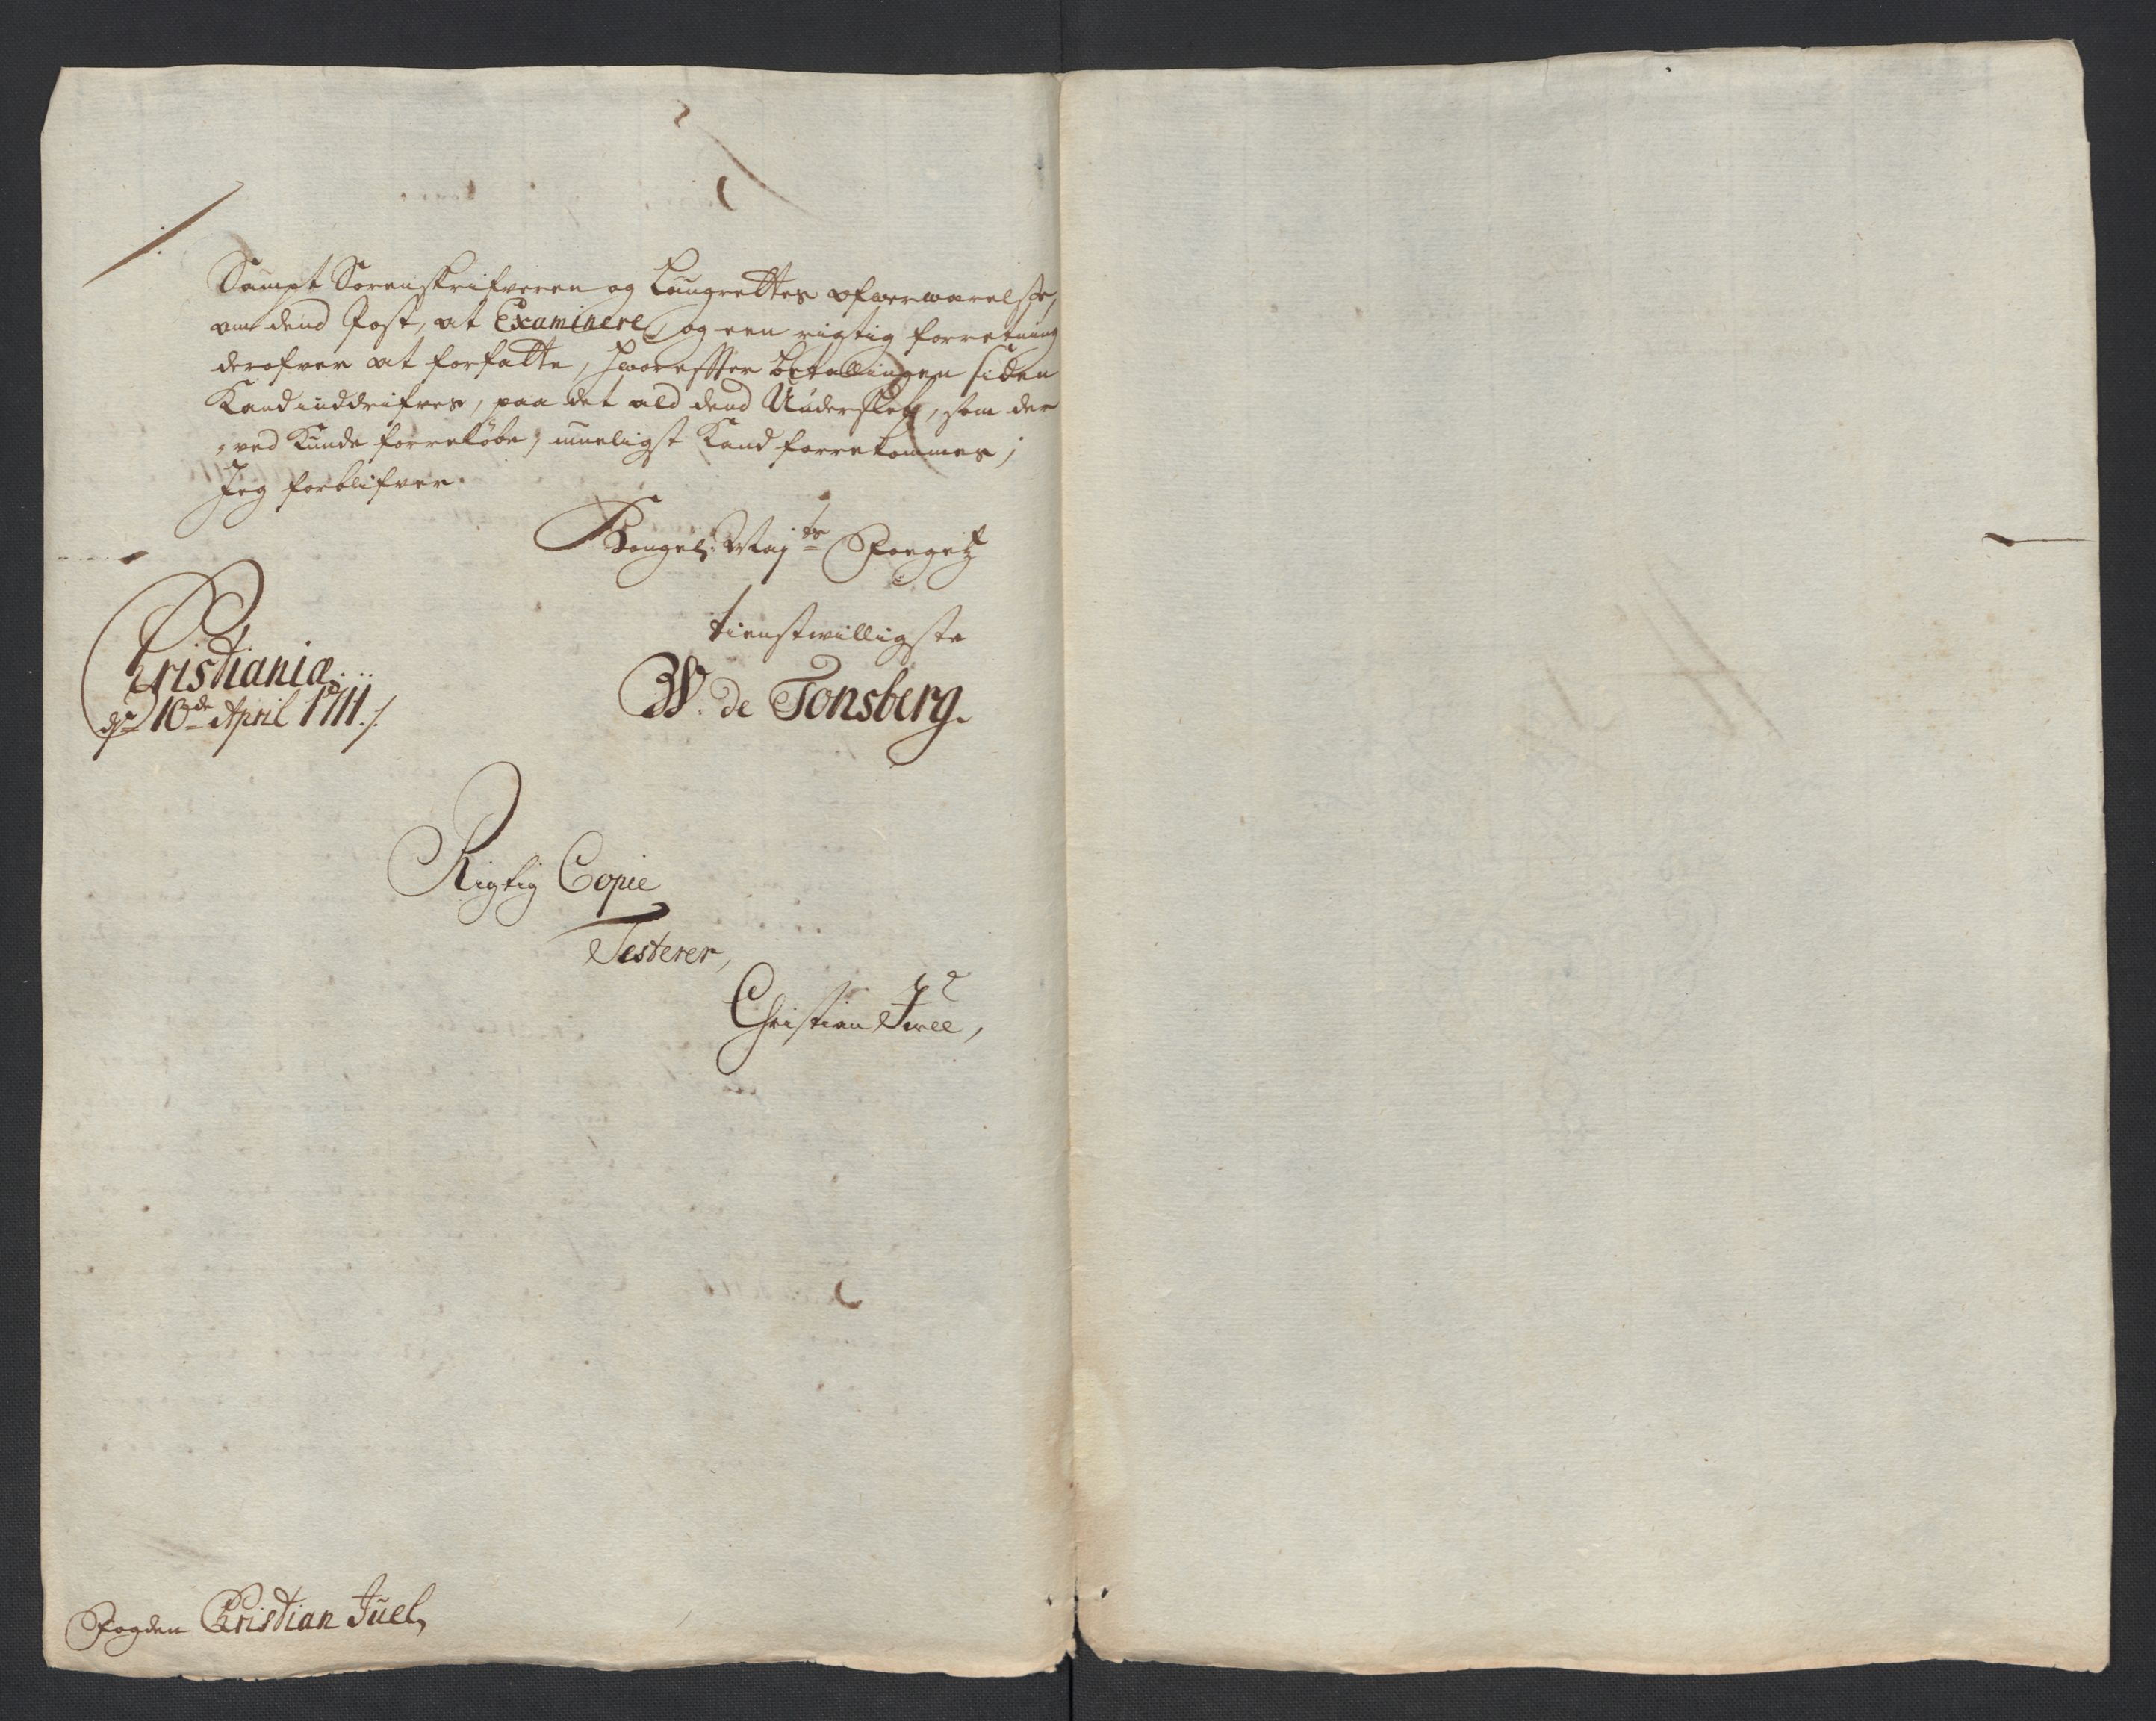 Sampt Sorenskrifveren og Laugrettes ofverværelse,
om dend Post, at Examinere, og een rigtig forretning
derofver at forfatte, hvorefter betallingen siden
Kand inddrifves, paa det ald dend Underslæb, som der
„ved Kunde forreløbe, mueligst Kand forrekommes;
Jeg forblifver
Kongel: Maj:ts Foegetz
tienstwilligste
W. de Tonsberg.
Christiania
d 10de April 1711./.
Rigtig Copie
Testerer,
Christian Juel,
Fogden Christian Juel,